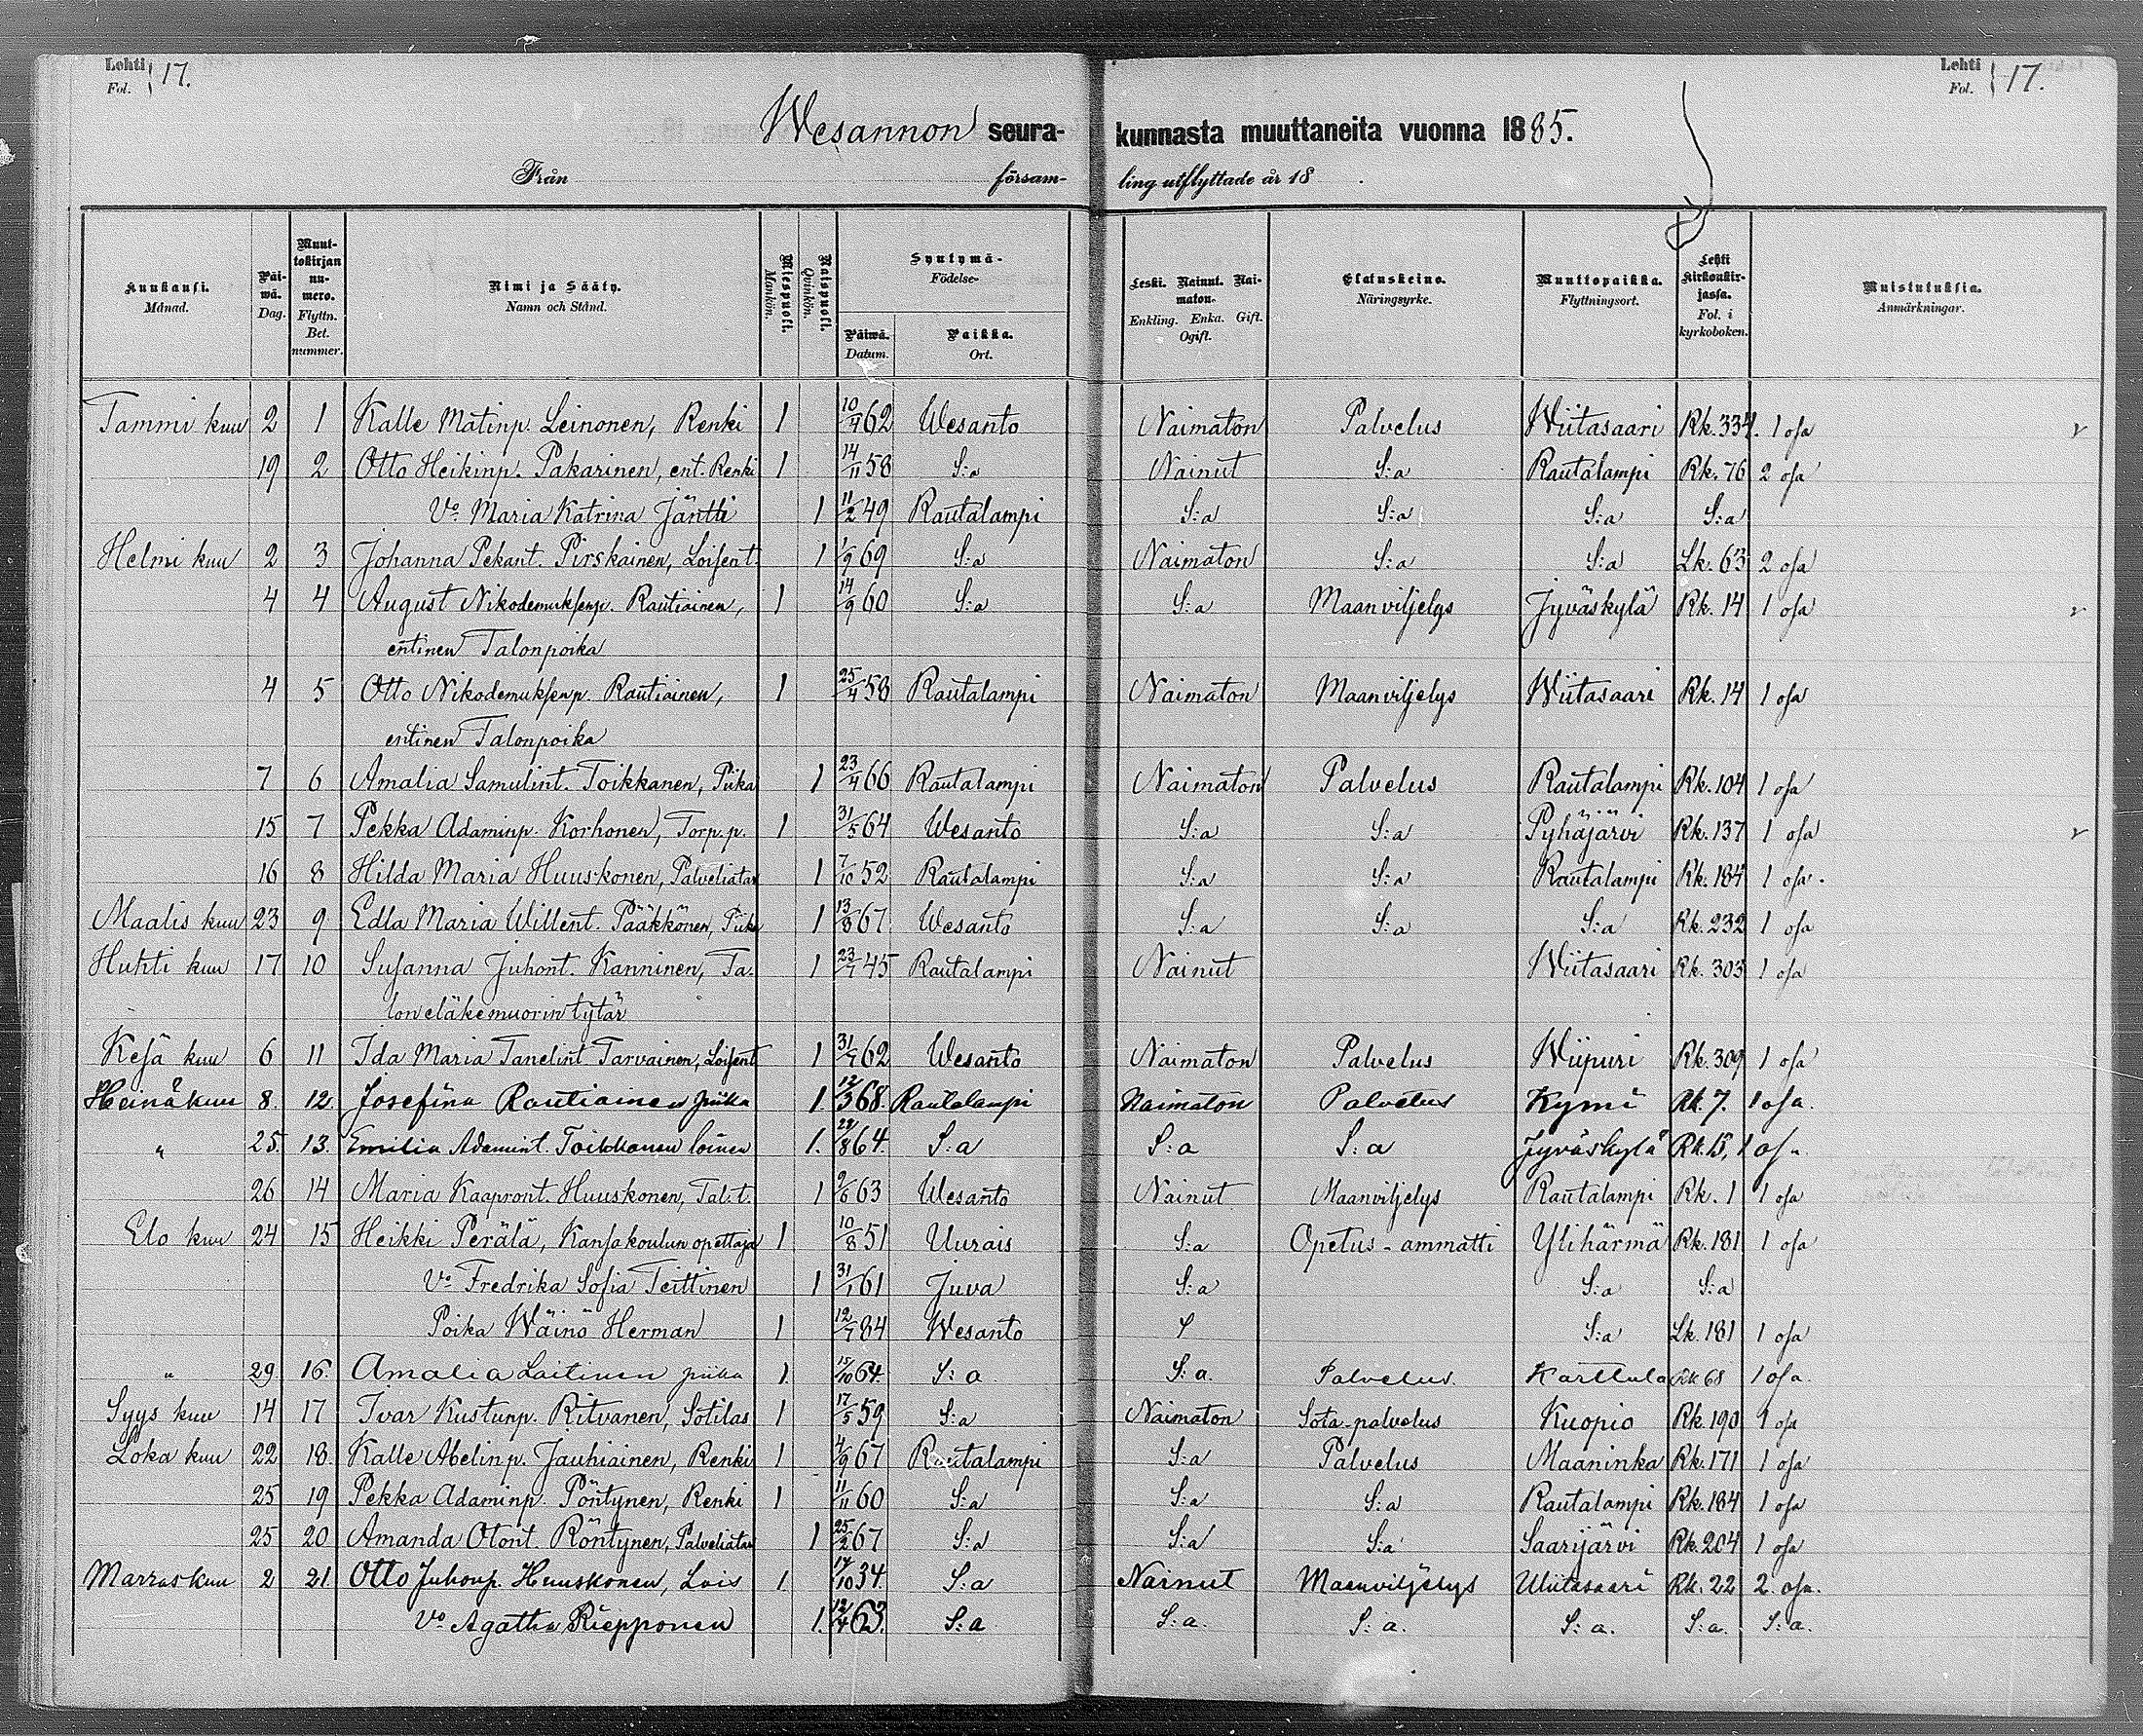 Lehti Fol. } 17.
Lehti Fol. } 17.
Wesannon seura-kunnasta muuttaneita vuonna 1885.
Från församling utflyttade år 18 .
Kuukausi. Månad. Päiwä. Dag. Muuttokirjan numero. Flyttn. Bet. nummer. Nimi ja Sääty. Namn och Stånd. Miespuoli. Mankön. Naispuoli. Qvinkön. Syntymä- Födelse- Päiwä. Datum. Paikka. Ort. Leski. Nainut. Naimaton. Enkling. Enka. Gift. Ogift. Elatuskeino. Näringsyrke. Muuttopaikka. Flyttningsort. Lehti Kirkonkirjassa. Fol. i kyrkoboken. Muistutuksia. Anmärkningar.
Tammi kuu 2 1 Kalle Matinp. Leinonen, Renki 1 10/4 62 Wesanto Naimaton Palvelus Wiitasaari Rk. 334. 1 osa
19 2 Otto Heikinp. Pakarinen, ent. Renki 1 14/11 58 S:a Nainut S:a Rautalampi Rk. 76 2 osa
Vo. Maria Katrina Jäntti 1 11/2 49 Rautalampi S:a S:a S:a S:a
Helmi kuu 2 3 Johanna Pekant. Pirskainen, Loisent. 1 1/9 69 S:a Naimaton S:a S:a Lk. 63 2 osa
4 4 August Nikodemuksenp. Rautiainen, 1 14/9 60 S:a S:a Maanviljelys Jyväskylä Rk. 14 1 osa
entinen Talonpoika
4 5 Otto Nikodemuksenp. Rautiainen, 1 25/4 58 Rautalampi Naimaton Maanviljelys Wiitasaari Rk. 14 1 osa
entinen Talonpoika
7 6 Amalia Samulint. Toikkanen, Piika 1 23/4 66 Rautalampi Naimaton Palvelus Rautalampi Rk. 104 1 osa
15 7 Pekka Adaminp. Korhonen, Torp.p. 1 31/5 64 Wesanto S:a S:a Pyhäjärvi Rk. 137 1 osa
16 8 Hilda Maria Huuskonen, Palveliatar 1 7/10 52 Rautalampi S:a S:a Rautalampi Rk. 184 1 osa.
Maalis kuu 23 9 Edla Maria Willent. Pääkkönen, Piika 1 13/8 67 Wesanto S:a S:a S:a Rk. 232 1 osa
Huhti kuu 17 10 Susanna Juhont. Kanninen, Ta- 1 23/7 45 Rautalampi Nainut Wiitasaari Rk. 303 1 osa
lon eläkemuorin tytär
Kesä kuu 6 11 Ida Maria Tanelint. Tarvainen, Loisent 1 31/7 62 Wesanto Naimaton Palvelus Wiipuri Rk. 309 1 osa
Heinäkuu 8. 12. Josefina Rautiainen piika 1. 12/3 68. Rautalampi Naimaton Palvelus Kymi Rk. 7. 1 osa.
" 25. 13. Emilia Adamint. Toikkanen loinen 1. 28/8 64. S:a S:a S:a Jyväskylä Rk. 15, 1 osa.
26 14 Maria Kaapront. Huuskonen, Tal.t. 1 9/6 63 Wesanto Nainut Maanviljelys Rautalampi Rk. 1 1 osa
Elo kuu 24 15 Heikki Perälä, Kansakoulun opettaja 1 10/8 51 Uurais S:a Opetus-ammatti Ylihärmä Rk. 181 1 osa
Vo. Fredrika Sofia Teittinen 1 31/1 61 Juva S:a S:a S:a
Poika Wäinö Herman 1 12/7 84 Wesanto S:a Lk. 181 1 osa
" 29. 16. Amalia Laitinen piika 1. 15/10 64. S:a S:a. Palvelus. Karttula Rk 68 1 osa.
Syys kuu 14 17 Ivar Kustunp. Ritvanen, Sotilas 1 17/5 59 S:a Naimaton Sota-palvelus Kuopio Rk. 190 1 osa
Loka kuu 22 18. Kalle Abelinp. Jauhiainen, Renki 1 4/9 67 Rautalampi S:a Palvelus Maaninka Rk. 171 1 osa
25 19 Pekka Adaminp. Pöntynen, Renki 1 11/11 60 S:a S:a S:a Rautalampi Rk. 184 1 osa
25 20 Amanda Otont. Röntynen, Palveliatar 1 25/2 67 S:a S:a S:a Saarijärvi Rk. 204 1 osa
Marraskuu 2 21. Otto Juhonp. Huuskonen, Lois 1. 17/10 34. S:a Nainut Maanviljelys Wiitasaari Rk. 22 2. osa.
Vo. Agatha Riepponen 1. 12/4 63. S:a S:a. S:a. S:a. S:a. S:a.